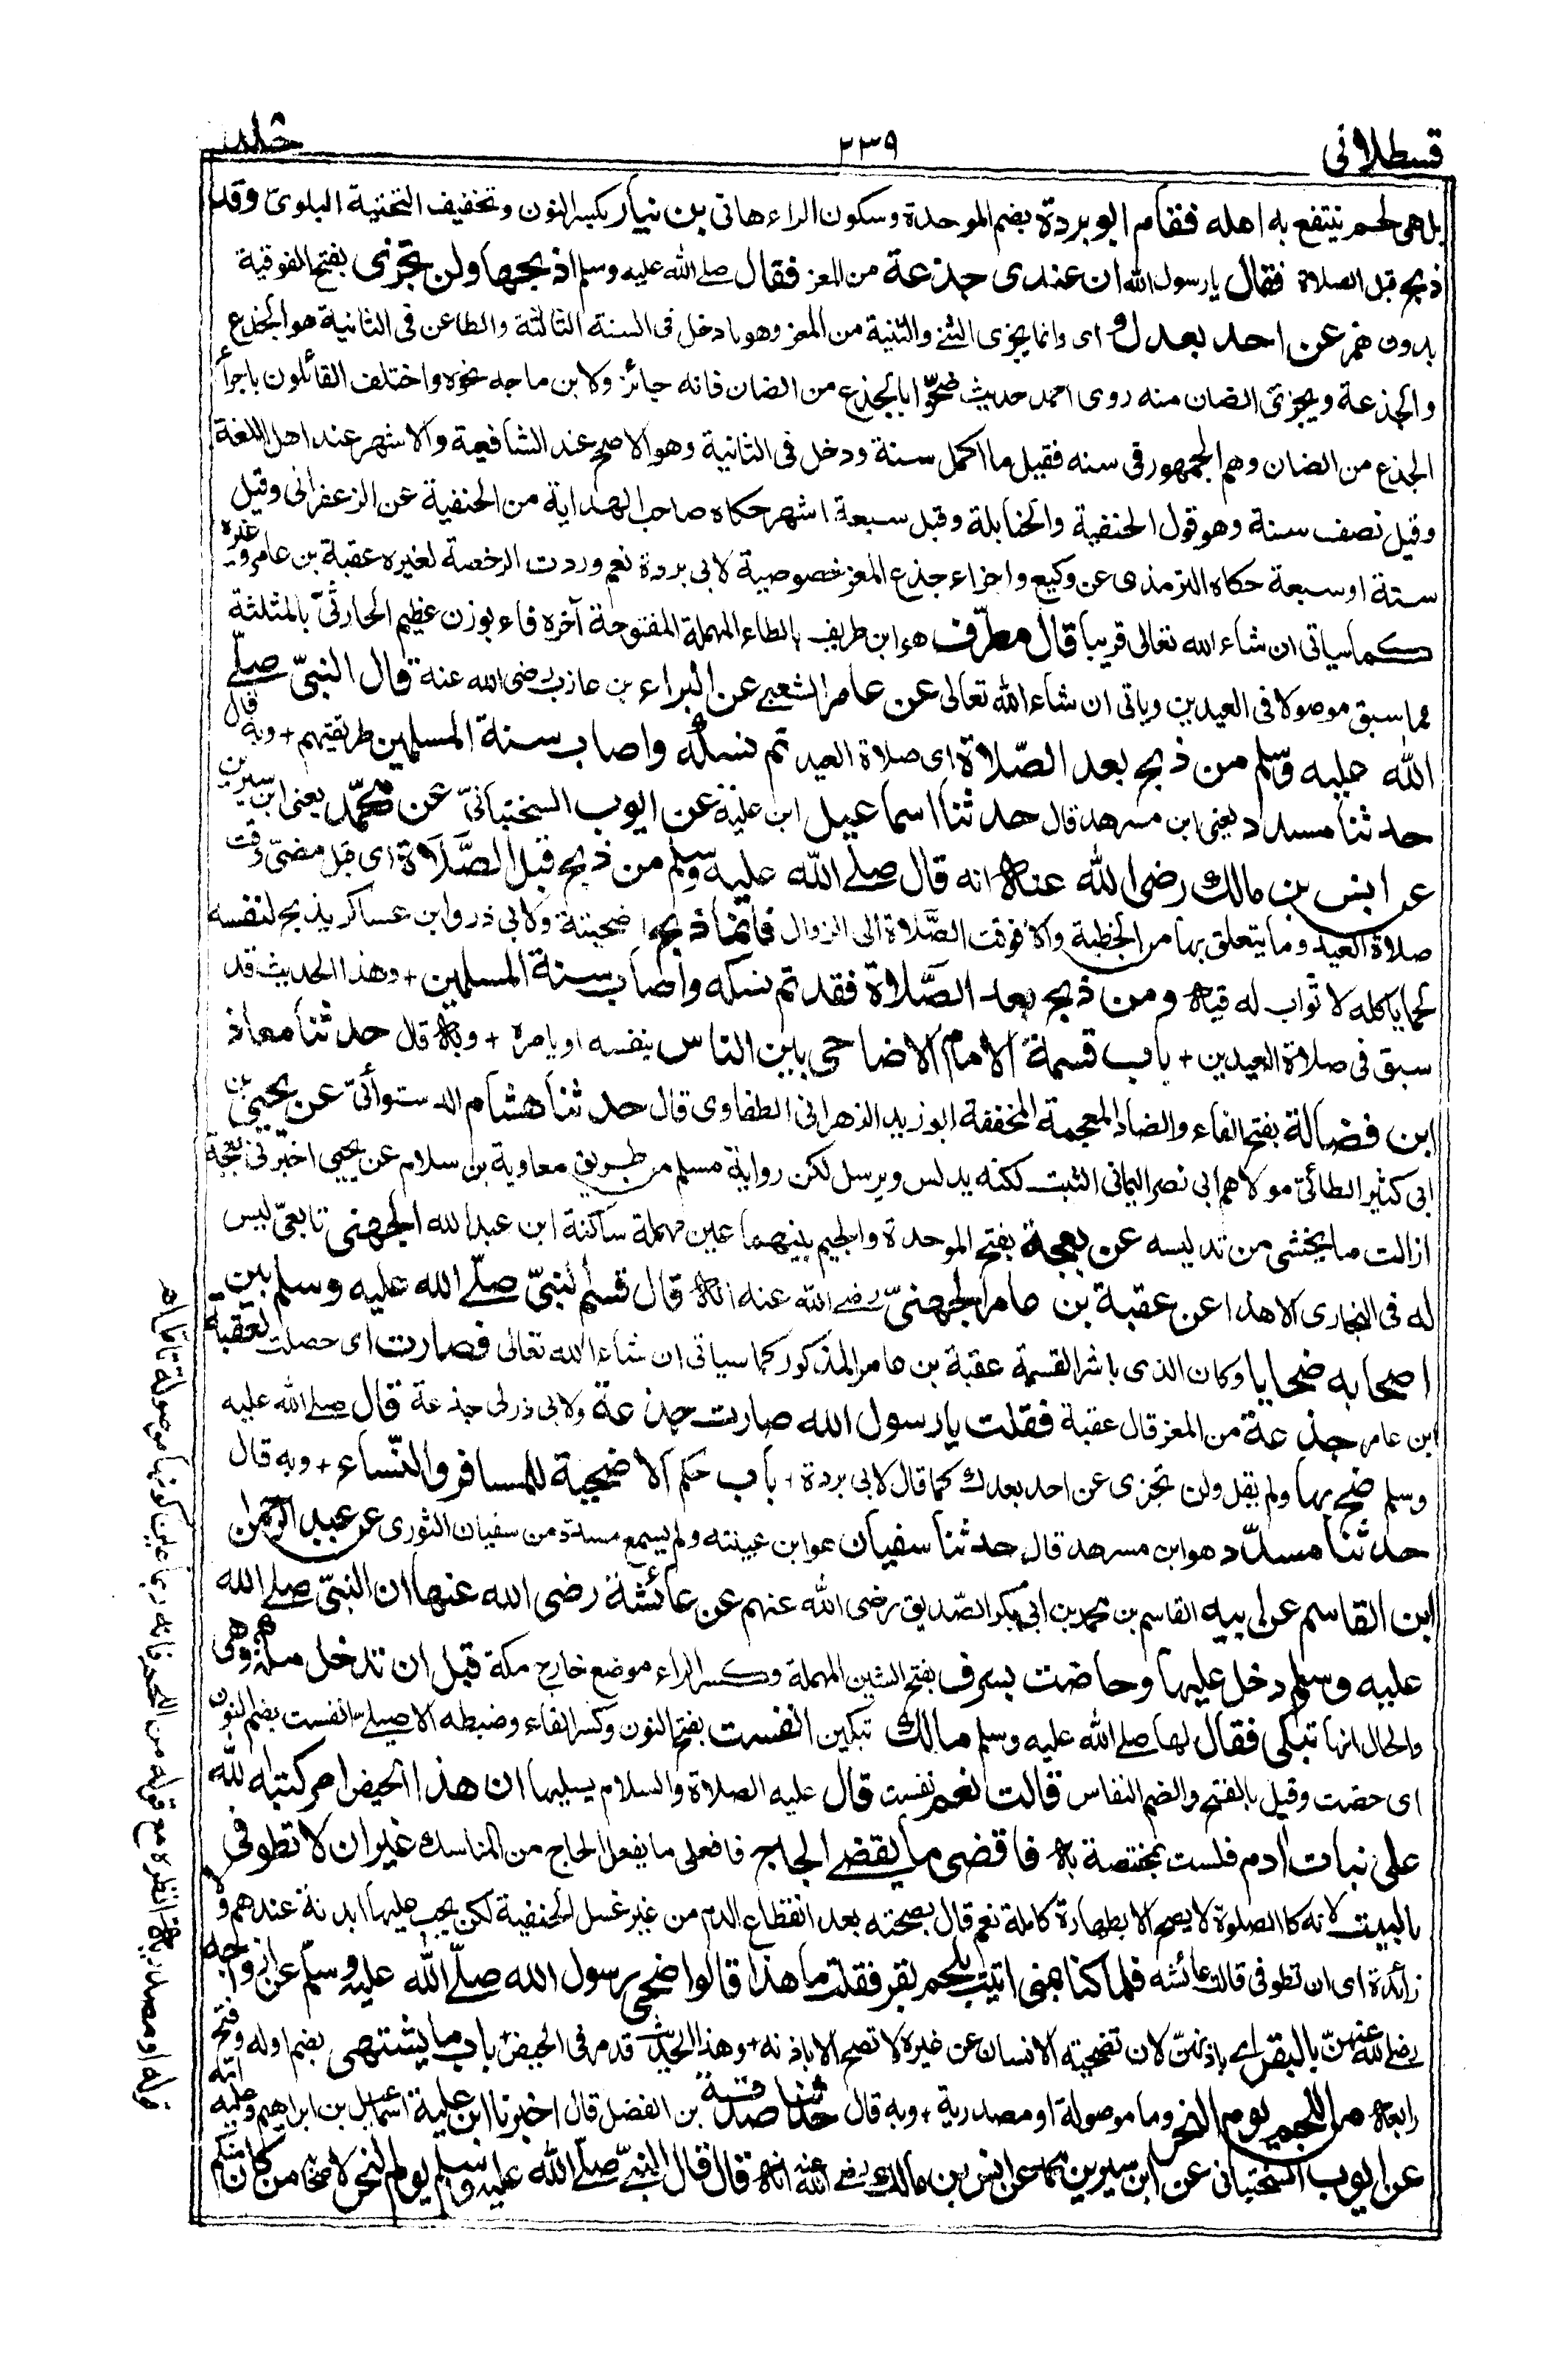 قسطلانی
۲۳۹
جلد
بل هی لحم ینتفع به اهله فقام ابو بردة بضم الموحدة وسکون الراء هانی بن نیار بکسر النون وتخفیف التحتیة البلویّ وقد
ذبح قبل الصلاة فقال یارسول الله ان عندی جذعة من المعز فقال صلی الله علیه وسلم اذبحها ولن تجزی بفتح الفوقیة
بدون همز عن احد بعدك ای وانما یجزی الثنی والثنیة من المعز وهو ما دخل فی السنة الثالثة والطاعن فی الثانیة هو الجذع
والجذعة ویجزئ الضان منه روی احمد حدیث ضحّوا بالجذع من الضان فانه جائز ولابن ماجه نحوه واختلف القائلون باجزأ
الجذع من الضان وهم الجمهور فی سنه فقیل ما اکمل سنة ودخل فی الثانیة وهو الاصح عند الشافعیة والاشهر عند اهل اللغة
وقیل نصف سنة وهو قول الحنفیة والحنابلة وقیل سبعة اشهر حکاه صاحب الهدایة من الحنفیة عن الزعفرانی وقیل
ستة او سبعة حکاه الترمذی عن وکیع واجزاء جذع المعز خصوصیة لابی بردة نعم وردت الرخصة لغیره عقبة بن عامر وغیره
کما سیاتی ان شاء الله تعالی قریبا قال مطرّف هو ابن طریف بالطاء المهملة المفتوحة آخره فاء بوزن عظیم الحارثیّ بالمثلثة
مما سبق موصولا فی العیدین ویاتی ان شاء الله تعالی عن عامر الشعبی عن البراء بن عازب رضی الله عنه قال النبیّ صلّی
الله علیه وسلم من ذبح بعد الصّلاة ای صلاة العید تم نسکُه واصاب سنة المسلمین طریقتهم + وبه قال
حدثنا مسدد یعنی ابن مسرهد قال حدثنا اسماعیل ابن علیة عن ایوب السختیانیّ عن محمّد یعنی ابن سیرین
عن انس بن مالك رضی الله عنه انه قال صلی الله علیه وسلم من ذبح قبل الصَّلاة ای قبل مضیّ وقت
صلاة العید وما یتعلق بها من الخطبة والا فوقت الصَّلاة الی الزوال فانما ذبح اضحیتة ولابی ذر وابن عساکر یذبح لنفسه
لحما یاکله لا ثواب له فیه ومن ذبح بعد الصَّلاة فقد تم نسکه واصاب سنة المسلمین + وهذا الحدیث قد
سبق فی صلاة العیدین + باب قسمة الامام الاضاحی بین الناس بنفسه او بامره + وبه قال حدثنا معاذ
ابن فضالة بفتح الفاء والضاد المعجمة المخففة ابو زید الزهرانی الطفاوی قال حدثنا هشام الدستوائیّ عن یحیی بن
ابی کثیر الطائیّ مولاهم ابی نصر الیمانی الثبت لکنه یدلس ویرسل لکن روایة مسلم من طریق معاویة بن سلام عن یحیی اخبرنی بعجة
ازالت ما یخشی من تدلیسه عن بعجة بفتح الموحدة والجیم بینهما عین مهملة ساکنة ابن عبد الله الجهنی تابعیّ لیس
له فی البخاری الا هذا عن عقبة بن عامر الجهنیّ رضی الله عنه انه قال قسم النبیّ صلّی الله علیه وسلم بین
اصحابه ضحایا وکان الذی باشر القسمة عقبة بن عامر المذکور کما سیاتی ان شاء الله تعالی فصارت ای حصلت لعقبة
ابن عامر جذعة من المعز قال عقبة فقلت یارسول الله صارت جذعة ولابی ذر لی جذعة قال صلی الله علیه
وسلم ضح بها ولم یقل ولن تجزی عن احد بعدك کما قال لابی بردة + باب حکم الاضحیة للمسافر والنّساء + وبه قال
حدثنا مسدّد هو ابن مسرهد قال حدثنا سفیان هو ابن عیینته ولم یسمع مسدد من سفیان الثوری عن عبد الرحمن
ابن القاسم عن ابیه القاسم بن محمد بن ابی بکر الصّدیق رضی الله عنهم عن عائشة رضی الله عنها ان النبیّ صلی الله
علیه وسلم دخل علیها وحاضت بسرف بفتح السین المهملة وکسر الراء موضع خارج مکة قبل ان تدخل مکة وهی
والحال انها تبکی فقال لها صلی الله علیه وسلم مالك تبکین انفست بفتح النون وکسر الفاء وضبطه الاصیلی انفست بضم النون
ای حضت وقیل بالفتح والضم النفاس قالت نعم نفست قال علیه الصلاة والسلام یسلیها ان هذا الحیض امر کتبه الله
علی بنات ادم فلست بمختصة به فاقضی ما یقضی الحاج فافعلی ما یفعل الحاج من المناسك غیر ان لا تطوفی
بالبیت لانه کالصلوة لا یصح الا بطهارة کاملة نعم قال بصحته بعد انقطاع الدم من غیر غسل الحنفیة لکن یجب علیها بدنة عندهم ولا
زائدة ای ان تطوفی قالت عائشه فلما کنا بمنی اتیت بلحم بقر فقلت ما هذا قالوا ضحی رسول الله صلّی الله علیه وسلّم عن ازواجه
رضی الله عنهنّ بالبقر ای باذنهنّ لان تضحیته الانسان عن غیره لا تصح الا باذنه + وهذا الحدیث قد مر فی الحیض + باب ما یشتهی بضم اوله وفتح
رابعه من اللحم یوم النحر وما موصولة او مصدریة + وبه قال حدثنا صدقة بن الفضل قال اخبرنا ابن علیة اسماعیل بن ابراهیم وعلیه امّه
عن ایوب السختیانی عن ابن سیرین محمد عن انس بن مالك رضی الله عنه انه قال قال النبیّ صلّی الله علیه وسلم یوم النحر لاصحابه من کان منکم
قوله او مصدریة انظره مع قوله من اللحم فانه ربما عین کونها موصولة تامل اه